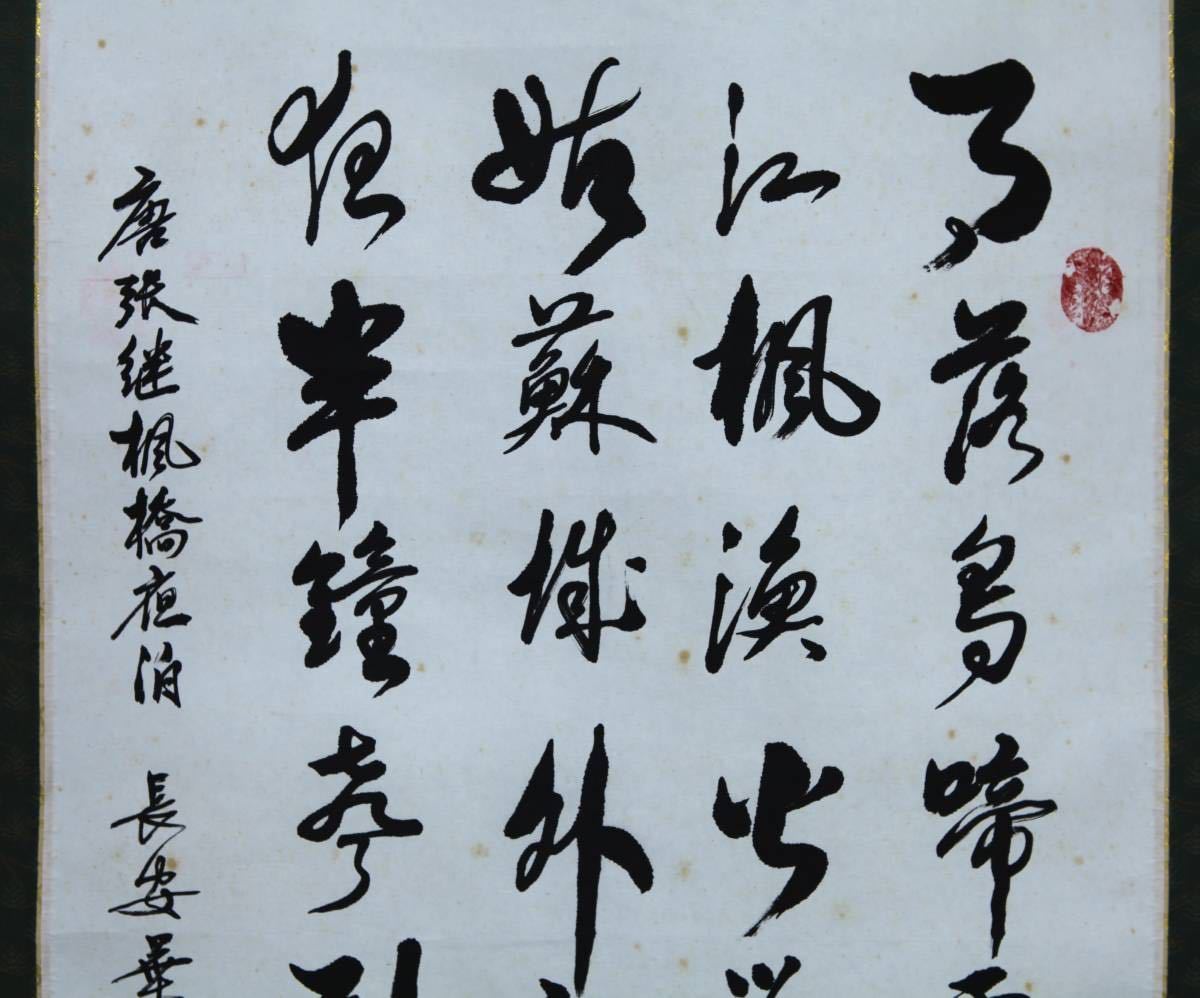 月落烏啼
江楓漁火
姑蘇城外
夜半鐘聲到
唐張继楓橋夜泊 長安華